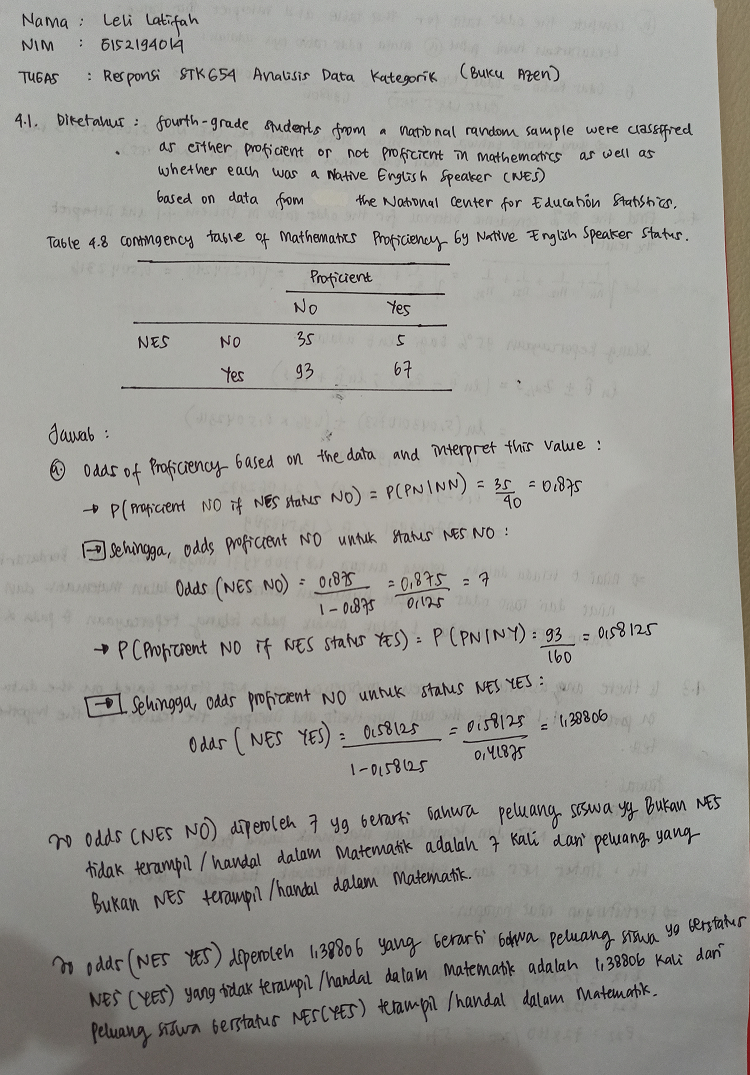 Nama : Leli Latifah
NIM : 6152194014
TUGAS : Responsi STK654 Analisis Data Kategorik (Buku Azen)
4.1. Diketahui : fourth-grade students from a national random sample were classified
as either proficient or not proficient in mathematics as well as
whether each was a Native English Speaker (NES)
based on data from the National Center for Education Statistics.
Table 4.8 Contingency table of Mathematics Proficiency by Native English Speaker Status.
Proficient
No Yes
NES NO 35 5
Yes 93 67
Jawab :
(a) Odds of Proficiency based on the data and interpret this value :
→ P(Proficient NO if NES status NO) = P(PN|NN) = 35/40 = 0,875
→ Sehingga, odds proficient NO untuk status NES NO :
Odds (NES NO) = 0,875/1-0,875 = 0,875/0,125 = 7
→ P(Proficient NO if NES status YES) = P(PN|NY) = 93/160 = 0,58125
→ Sehingga, odds proficient NO untuk status NES YES :
Odds (NES YES) = 0,58125/1-0,58125 = 0,58125/0,41875 = 1,38806
odds (NES NO) diperoleh 7 yg berarti bahwa peluang siswa yg Bukan NES
tidak terampil/handal dalam Matematik adalah 7 kali dari peluang yang
Bukan NES terampil/handal dalam Matematik.
odds (NES YES) diperoleh 1,38806 yang berarti bahwa peluang siswa yg berstatus
NES (YES) yang tidak terampil/handal dalam matematik adalah 1,38806 kali dari
peluang siswa berstatus NES(YES) terampil/handal dalam Matematik.